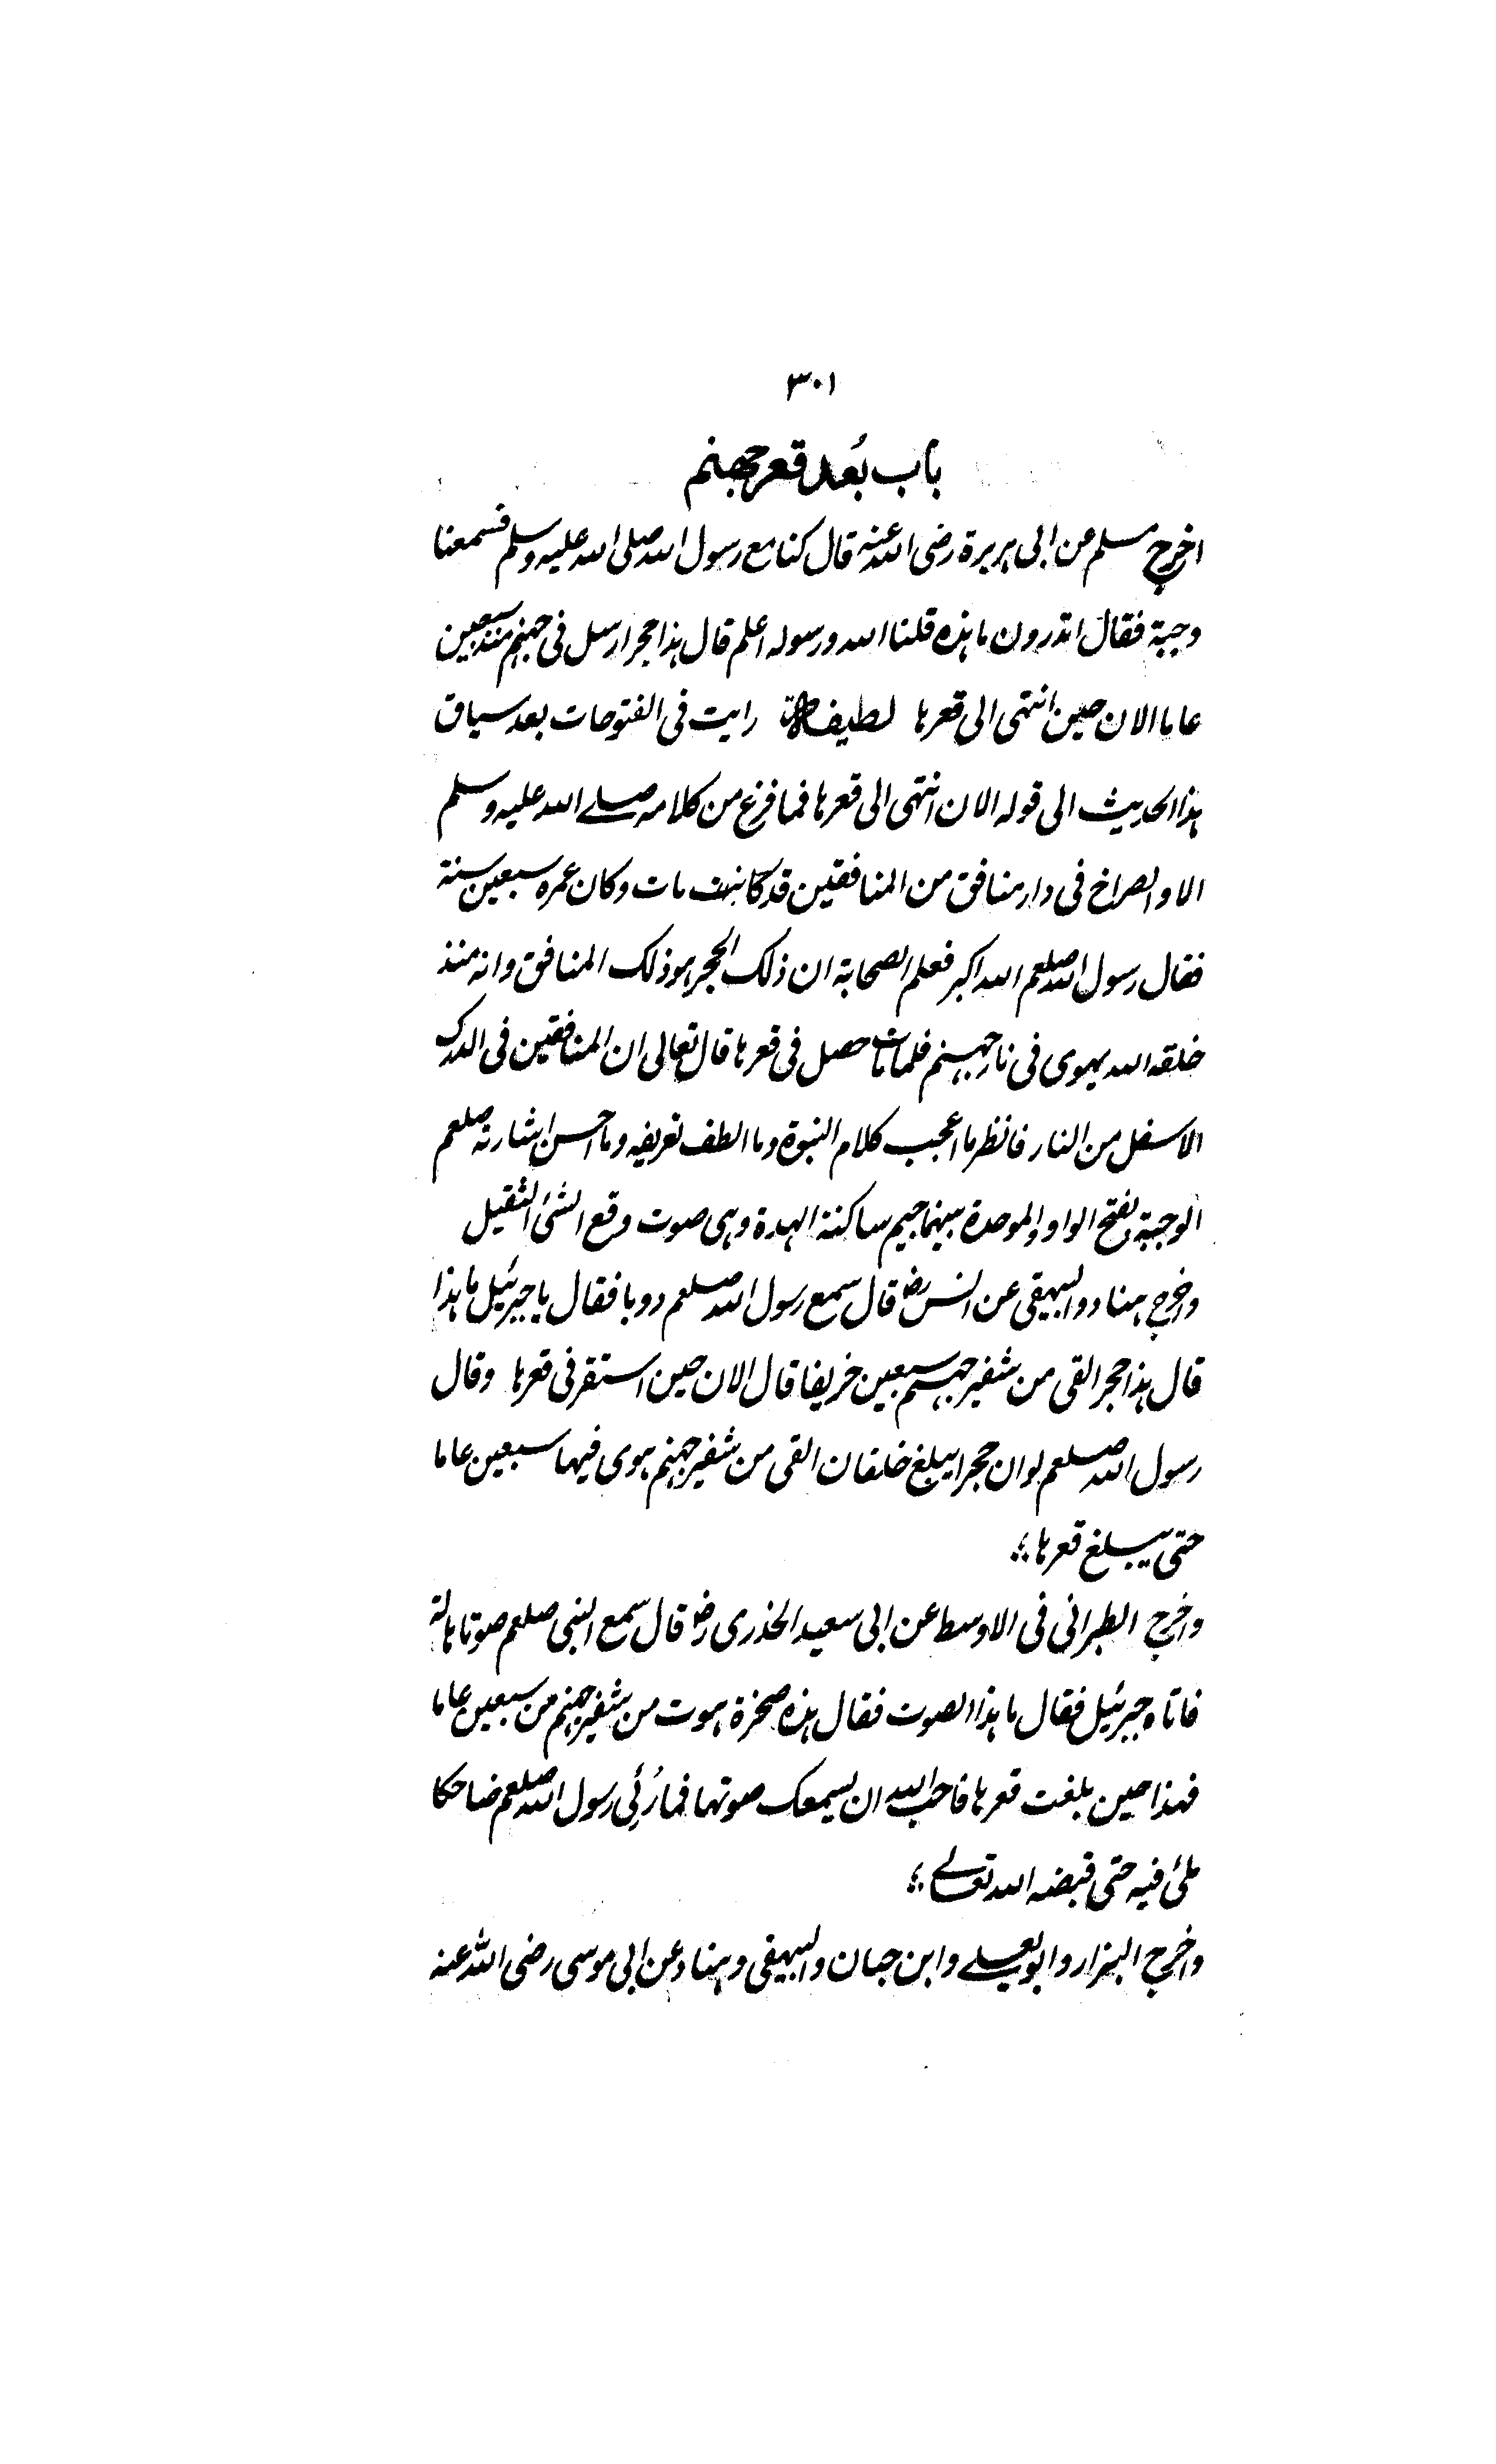 ٣٠١
باب بُعد قعر جهنم
اخرج مسلم عن ابی ہریرۃ رضی اللہ عنہ قال کنا مع رسول اللہ صلی اللہ علیہ وسلم فسمعنا
وجبۃ فقال اتدرون ما ہذہ قلنا اللہ ورسولہ اعلم قال ہذا حجر ارسل فی جہنم منذ سبعین
عاما الان حین انتہی الی قعرہا لطیفہ رایت فی الفتوحات بعد سیاق
ہذا الحدیث الی قولہ الان انتہی الی قعرہا فما فرغ من کلامہ صلے اللہ علیہ وسلم
الا والصراخ فی دار منافق من المنافقین قد مات وکان عمرہ سبعین سنۃ
فقال رسول اللہ صلعم اللہ اکبر فعلم الصحابۃ ان ذلک الحجر ہو ذلک المنافق وانہ منذ
خلقہ اللہ یہوی فی نار جہنم فلما مات حصل فی قعرہا قال تعالی ان المنافقین فی الدرک
الاسفل من النار فانظر ما اعجب کلام النبوۃ وما الطف تعریفہ وما احسن اشارتہ صلعم
الوجبۃ بفتح الواو والموحدۃ بینہما جیم ساکنۃ الہدۃ وہی صوت وقع الشئ الثقیل
واخرج ہناد والبیہقی عن انس رض قال سمع رسول اللہ صلعم دویا فقال یا جبرئیل ما ہذا
قال ہذا حجر القی من شفیر جہنم سبعین خریفا قال الان حین استقر فی قعرہا وقال
رسول اللہ صلعم لو ان حجرا یبلغ خلفان القی من شفیر جہنم ہوی فیہا سبعین عاما
حتی یبلغ قعرہا ؛
واخرج الطبرانی فی الاوسط عن ابی سعید الخدری رض قال سمع النبی صلعم صوتا ہالہ
فاتاہ جبرئیل فقال ما ہذا الصوت فقال ہذہ صخرۃ ہوت من شفیر جہنم من سبعین عاما
فہذا حین بلغت قعرہا فاحب اللہ ان یسمعک صوتہا فما رُئِی رسول اللہ صلعم ضاحکا
ملئ فیہ حتی قبضہ اللہ تعالے ؛
واخرج البزار وابو یعلے وابن حبان والبیہقی وہناد عن ابی موسی رضی اللہ عنہ